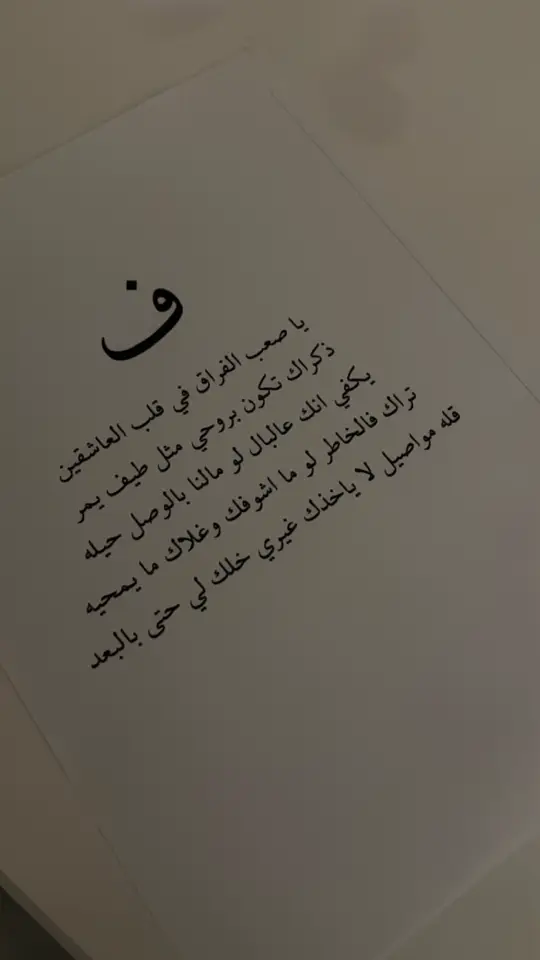 ف
يا صعب الفراق في قلب العاشقين
ذكراك تكون بروحي مثل طيف يمر
يكفي انك عالبال لو مالنا بالوصل حيله
تراك فالخاطر لو ما اشوفك وغلاك ما يمحيه
قله مواصيل لا ياخذك غيري خلك لي حتى بالبعد